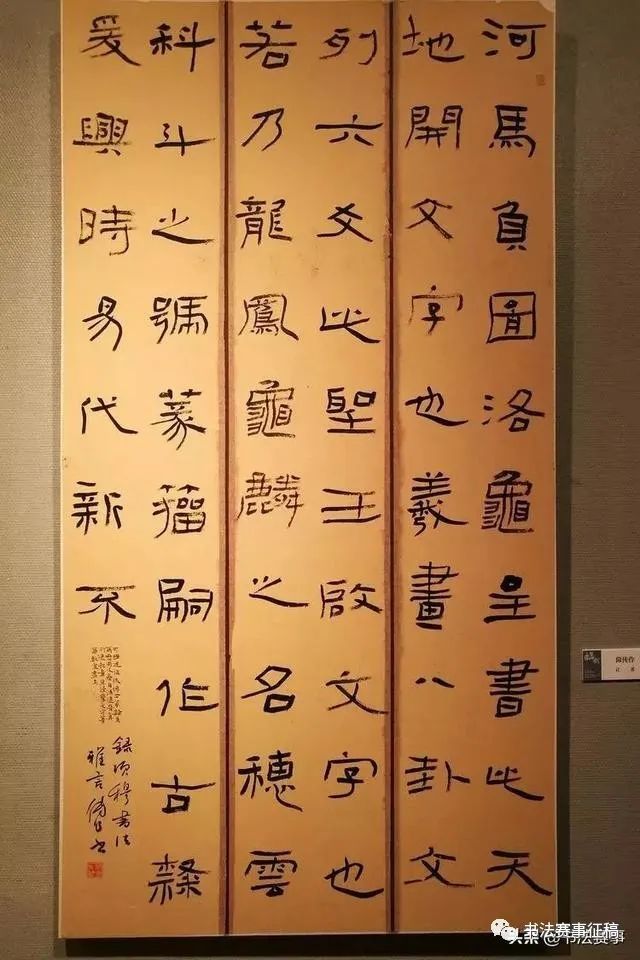 河馬負圖洛龜呈書此天
地開文字也羲畫八卦文
列六爻此聖王啟文字也
若乃龍鳳龜麟之名穗雲
科斗之號篆籀嗣作古隸
爰興時易代新不
錄項穆書法
雅言
书法赛事征稿
头条@书法赛事